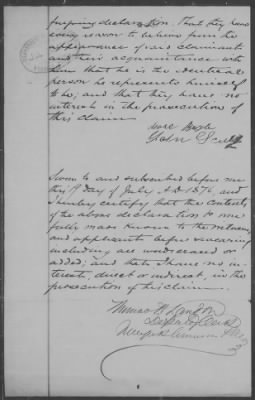 foregoing declaration. That they have
every reason to believe from the
appearance of said claimant
and their acquaintance with
him that he is the identical
person he represents himself
to be; and that they have no
interest in the prosecution of
this claim
John
Sworn to and subscribed before me
this day of July A.D. 187
and
I hereby certify that the contents
of the above declaration &c were
fully made known to the witnesses
and applicant before swearing
including words erased or
added; and that I have no in-
terest, direct or indirect, in the
prosecution of this claim.
Deputy Clerk